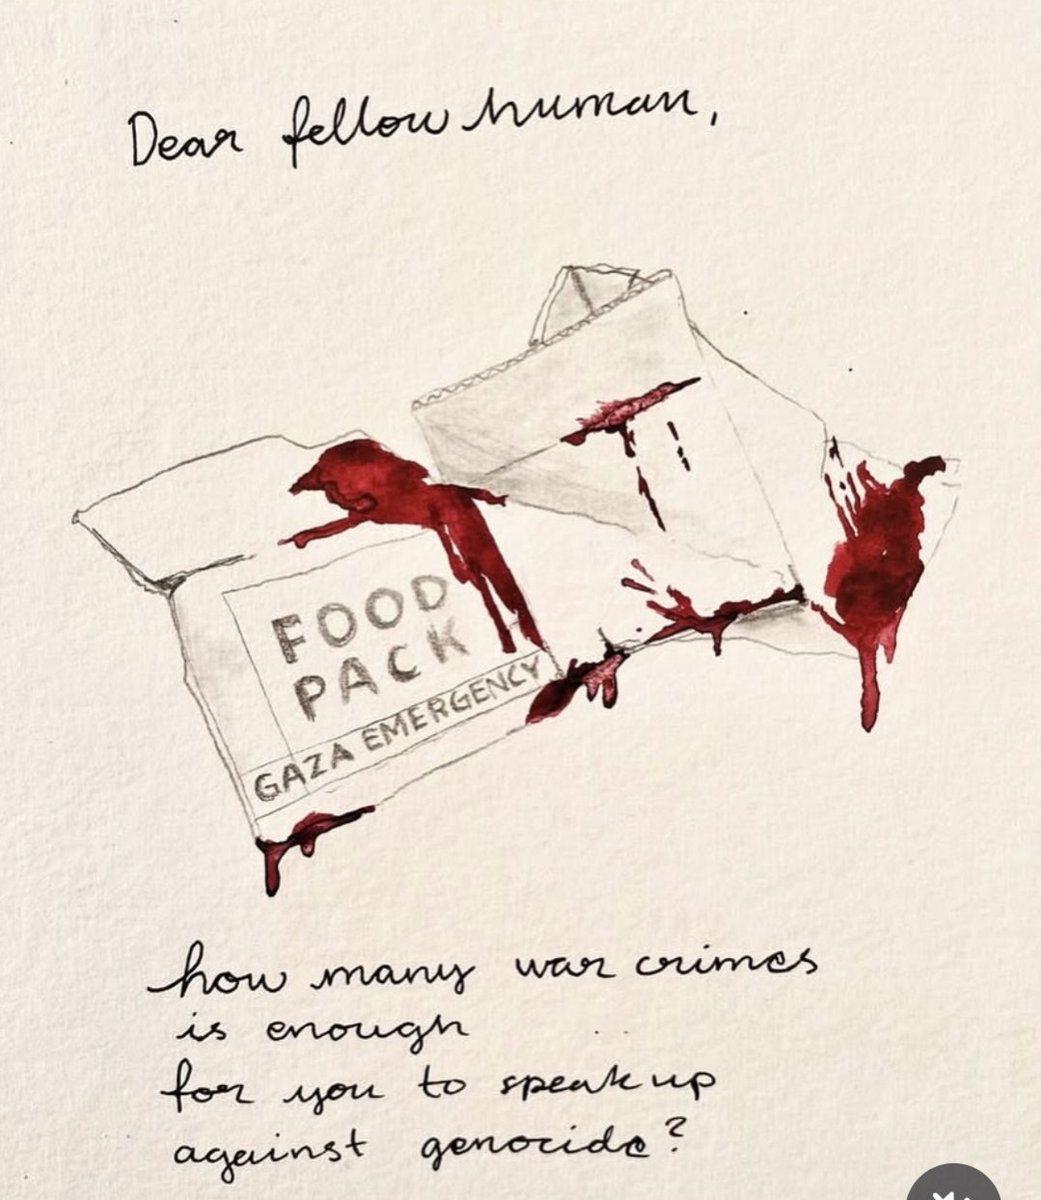 Dear fellow human,
FOOD
PACK
GAZA EMERGENCY
how many war crimes
is enough
for you to speak up
against genocide?